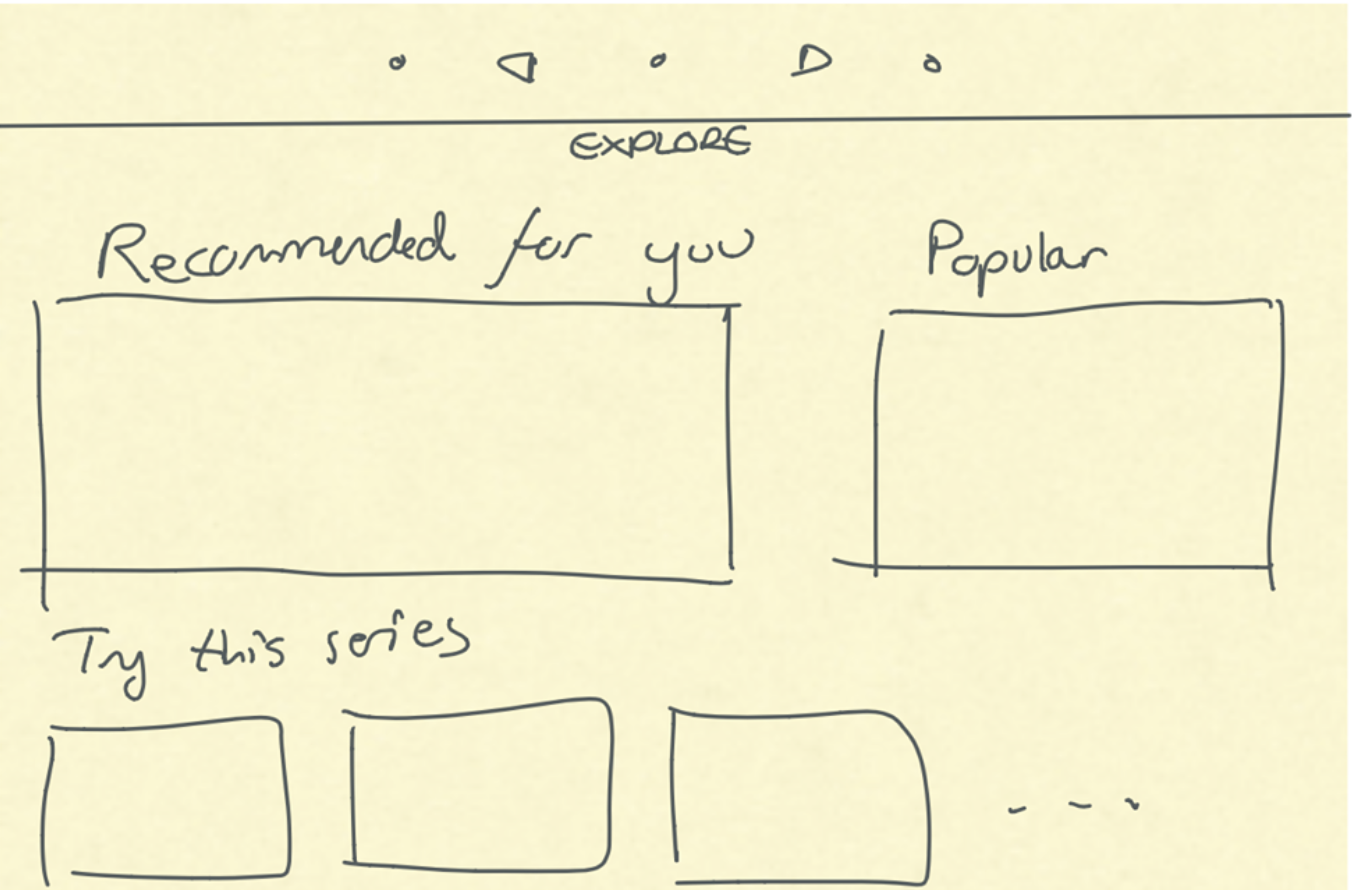 EXPLORE
Recommended for you
Popular
Try this series